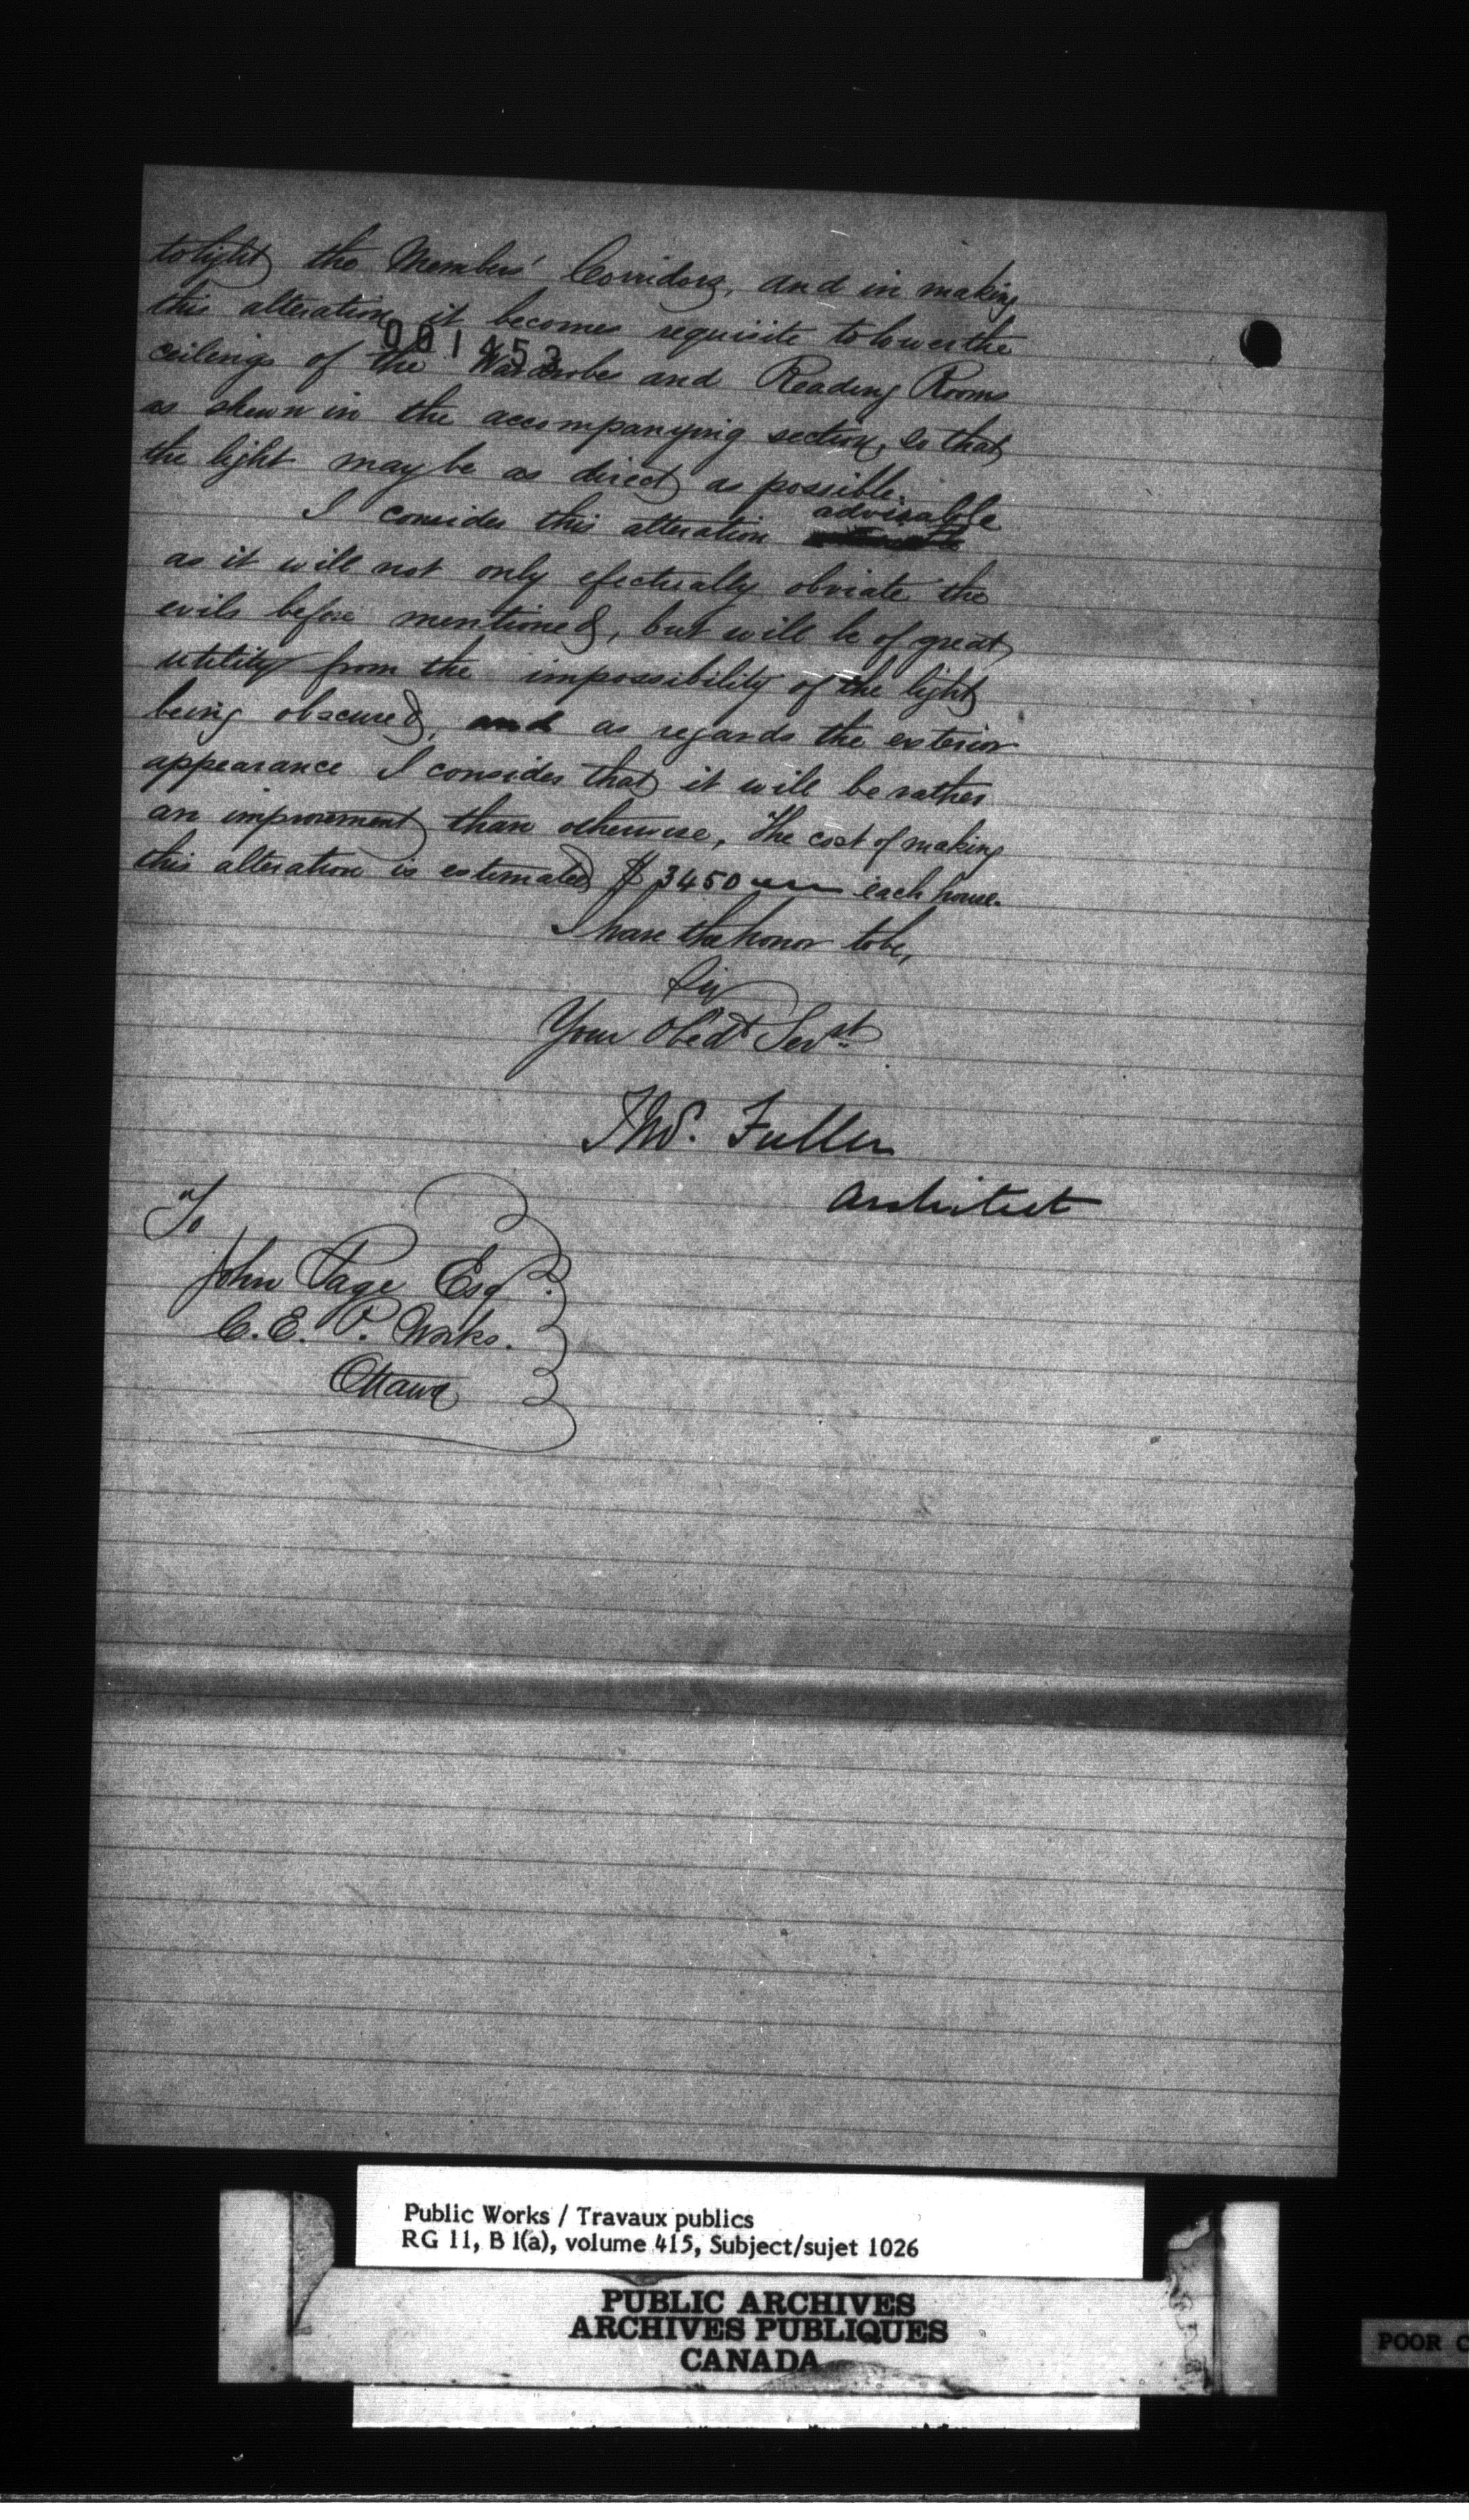 to light the Members' Corridors, and in making
this alteration it becomes requisite to lower the
001453
ceilings of the Wardrobes and Reading Rooms
as shewn in the accompanying section, so that
the light may be as direct as possible.
advisable
I consider this alteration
as it will not only efectually obviate the
evils before mentioned, but will be of great
utility from the impossibility of the light
being obscured, and as regards the exterior
appearance I consider that it will be rather
an improvement than otherwise, The cost of making
this alteration is estimated $3450 each house.
I have the honor to be,
Sir
Your Obedt Servt.
Thos. Fuller
Architect
To
John Page Esqr.
C. E. P. Works.
Ottawa
Public Works / Travaux publics
RG 11, B 1(a), volume 415, Subject/sujet 1026
PUBLIC ARCHIVES
ARCHIVES PUBLIQUES
CANADA
POOR C